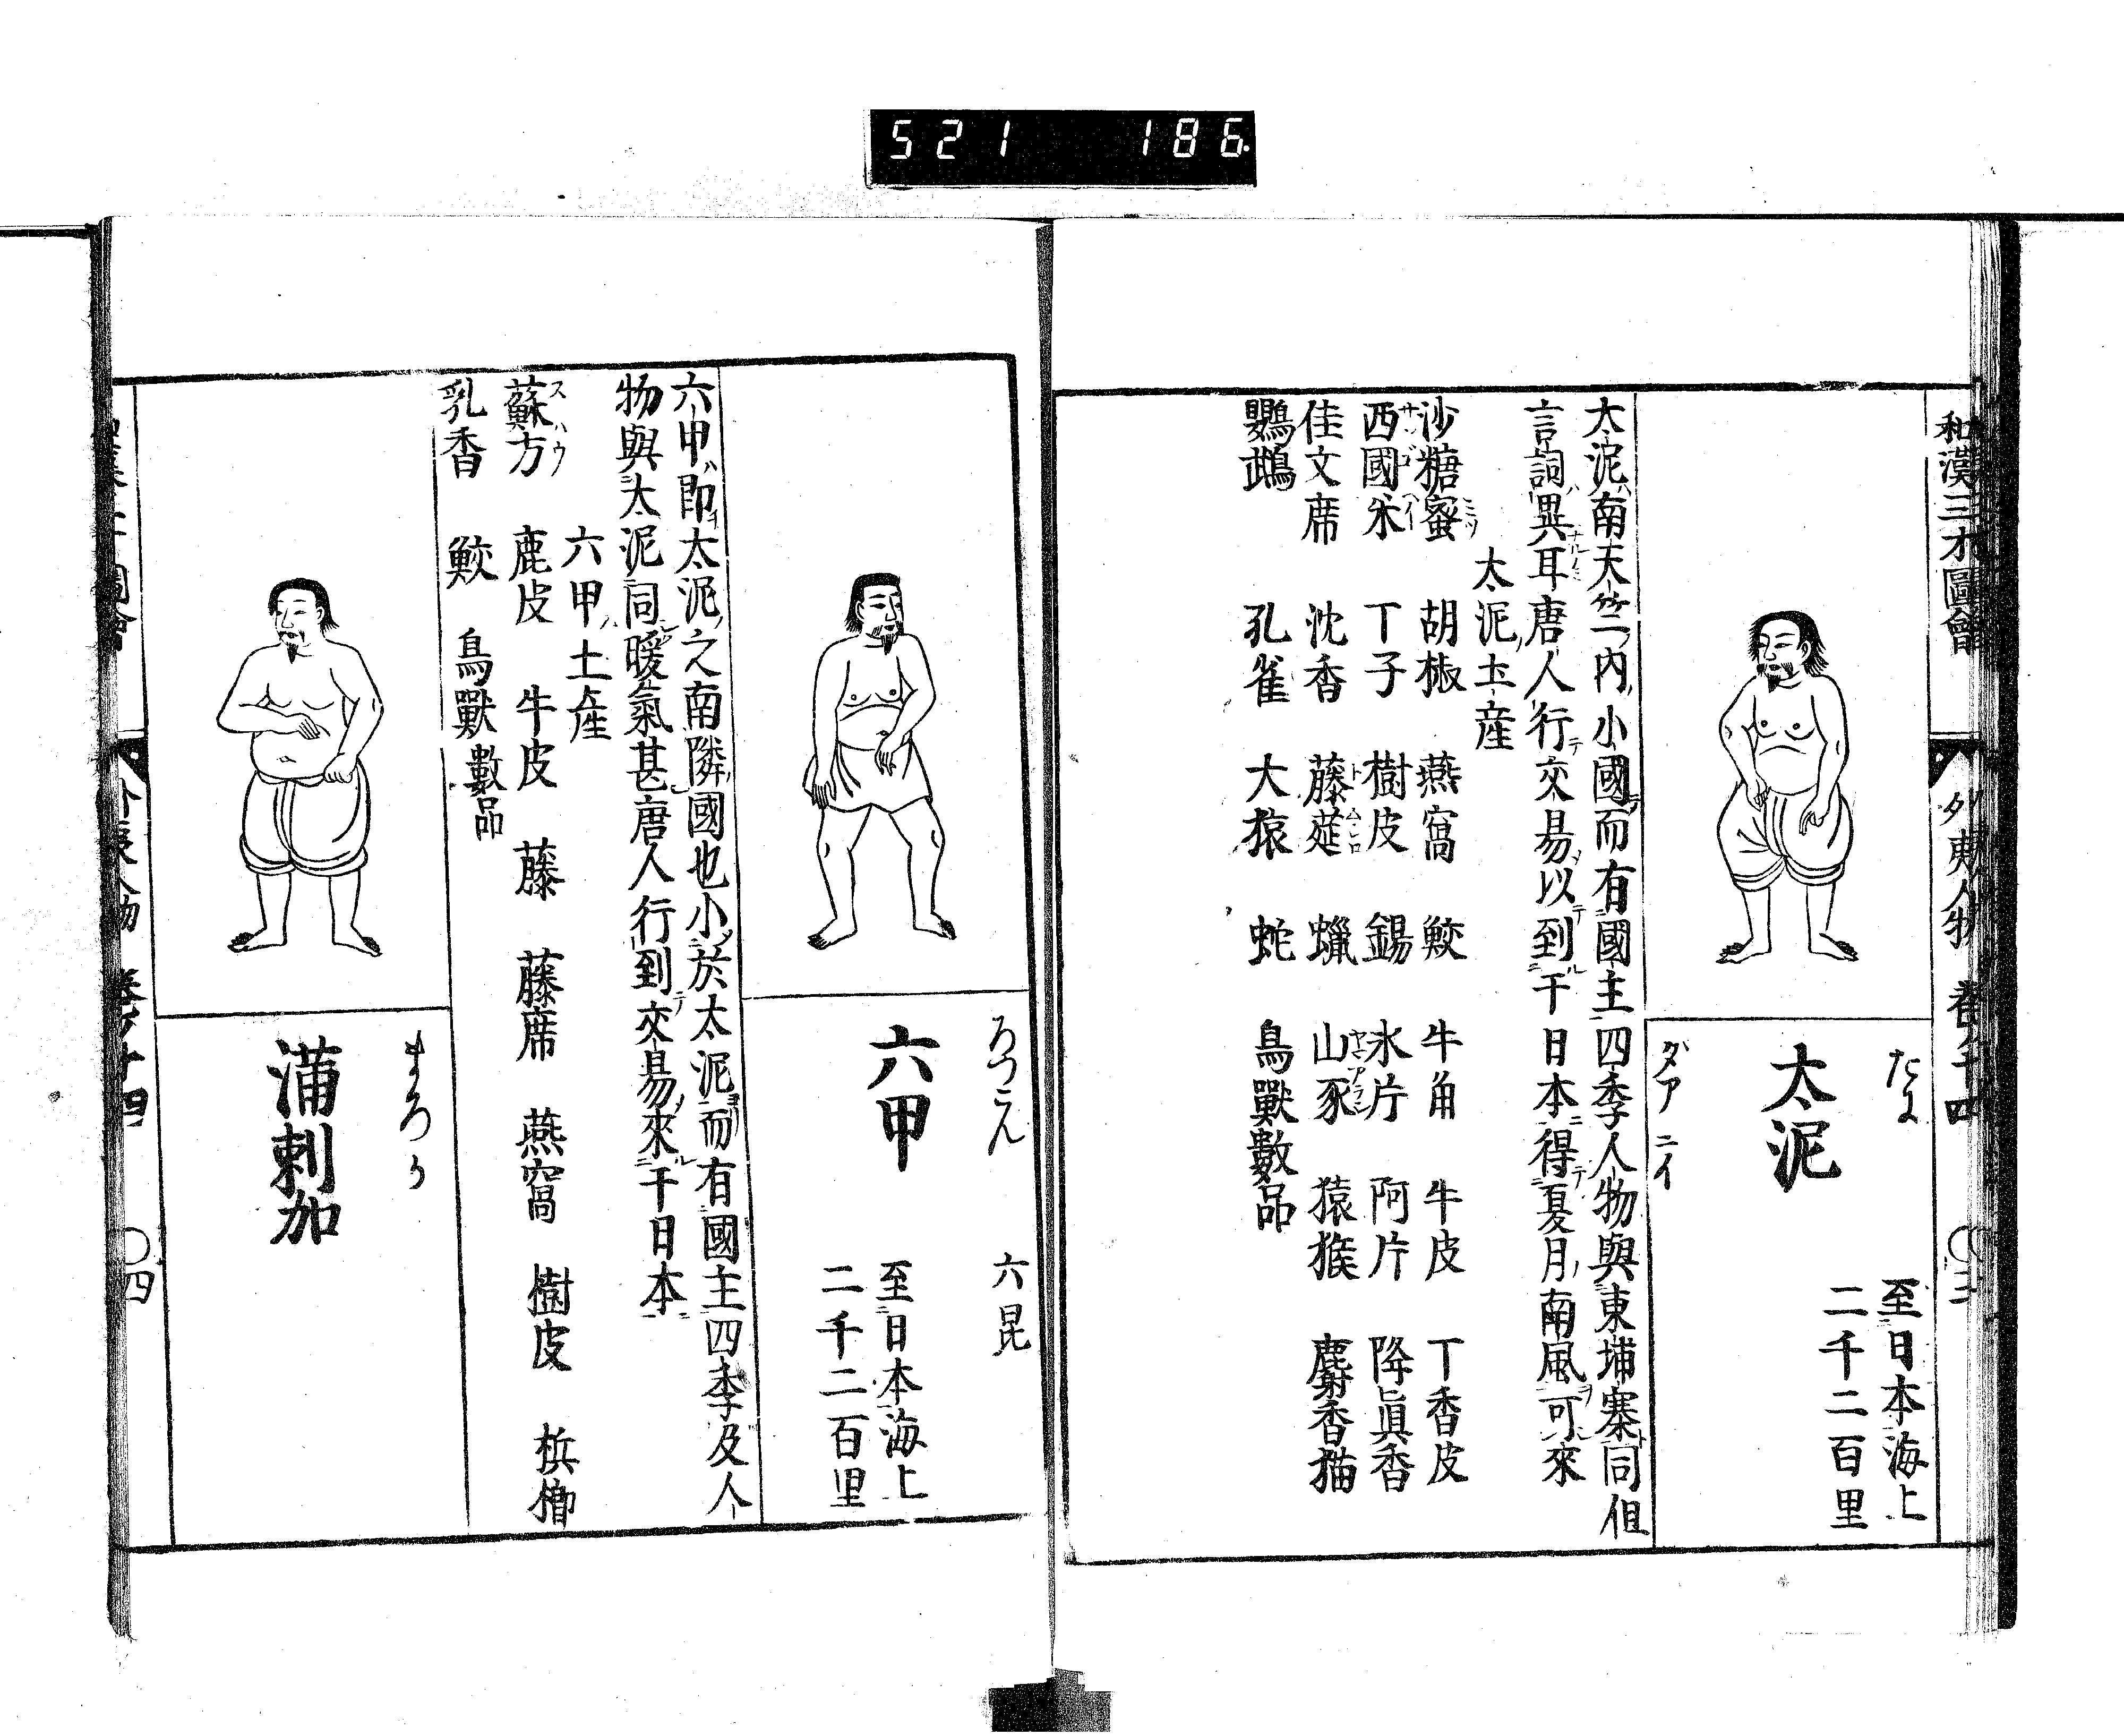 521 186
和漢三才圖會
外夷人物 卷ノ十四
たに
太泥
至日本海上
二千二百里
ダアニイ
太泥ハ南天竺ノ內ノ小國而有國主四季人物與東埔寨同但
言詞異耳唐人行交易以到于日本得夏月南風可來
太泥ノ土產
沙糖蜜 胡椒 燕窩 鮫 牛角 牛皮 丁香皮
西國米 丁子 樹皮 錫 氷片 阿片 降眞香
佳文席 沈香 藤莚 蠟 山豕 猿猴 麝香猫
鸚鵡 孔雀 大猿 蛇 鳥獸數品
ろつこん
六昆
六甲
至日本海上
二千二百里
六甲ハ即太泥ノ之南隣國也小於太泥而有國主四季及人
物與太泥同暖氣甚唐人行到交易來于日本
六甲ノ土產
蘇方 鹿皮 牛皮 藤 藤席 燕窩 樹皮 檳榔
乳香 鮫 鳥獸數品
まろか
滿剌加
四